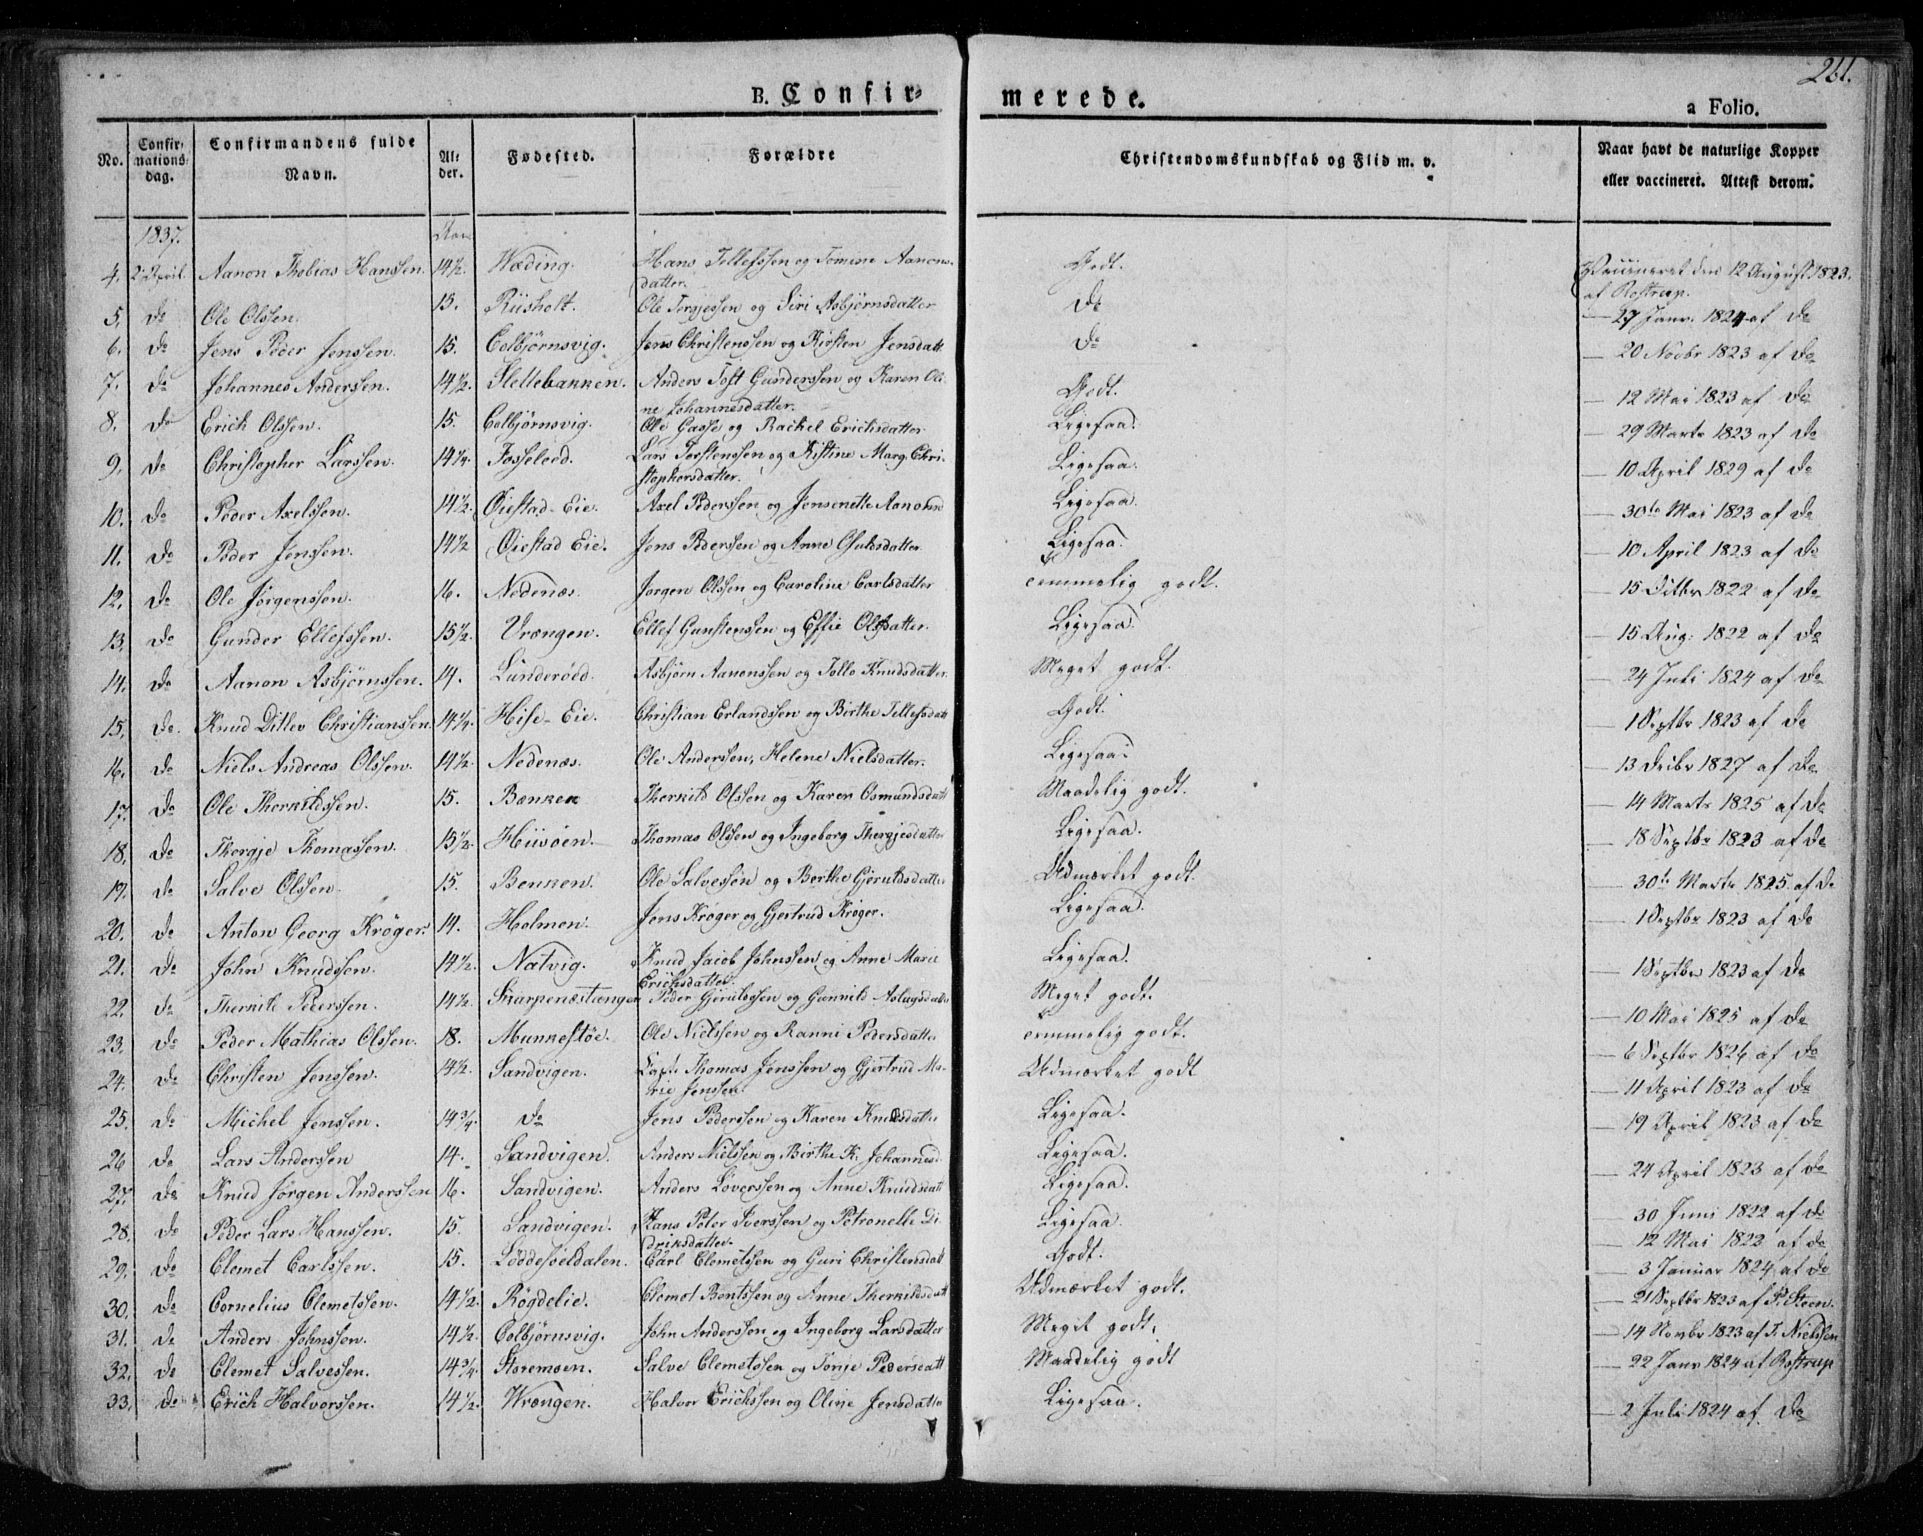 261.
B. Confirmerede.
a Folio.
No. Confirmationsdag. Confirmandens fulde Navn. Alder. Fødested. Forældre Christendomskundskab og Flid m. v. Naar havt de naturlige Kopper eller vaccineret. Attest derom.
1837. Aar
4. 2 April. Aanon Thobias Hanssen. 14½. Wæding. Hans Tellefssen og Tomine Aanonsdatter. Godt. Vaccineret den 12 August 1823. af Rostrup.
5. do Ole Olssen. 15. Riisholt. Ole Tergiessen og Siri Asbjørnsdatter do — 27 Janr. 1824 af do
6. do Jens Peder Jenssen. 15. Colbjørnsvig. Jens Christenssen og Kirsten Jensdatt do — 20 Novbr 1823 af do
7. do Johannes Anderssen. 14½ Slettebannen. Anders Toft Gunderssen og Karen Oline Johannesdatter. Godt. — 12 Mai 1823 af do
8. do Erick Olssen. 15. Colbjørnsvig. Ole Gasse og Rachel Ericksdatter Ligesaa. — 29 Marts 1823 af do
9. do Christopher Larssen. 14¼. Fosseloed. Lars Torstenssen og Kistine Marg. Christophersdatter. Ligesaa. — 10 April 1829 af do
10. do Peder Axelssen. 14½. Øiestad-Eie. Axel Pederssen og Jensenette Aanonsd Ligesaa. — 30te Mai 1823 af do
11. do Peder Jenssen. 14½ Øiestad Eie. Jens Pederssen og Anne Ligesaa. — 10 April 1823 af do
12. do Ole Jørgenssen. 16. Nedenæs. Jørgen Olssen og Caroline Carlsdatter Temmelig godt. — 15 1822 af do
13. do Gunder Ellefssen. 15½. Vrængen. Ellef Gunstenssen og Eflie Olsdatter. Ligesaa. — 15 Aug: 1822 af do
14. do Aanon Asbjørnssen. 14. Lunderøed. Asbjørn Aanonssen og Tollo Knudsdatter. Meget godt. — 24 Juli 1824 af do
15. do. Knud Ditlev Christianssen. 14¼. Hise-Eie. Christian Erlandssen og Birthe Tellefsdatt Godt. — 1 Septbr 1823 af do
16. do Niels Andreas Olssen. 14½. Nedenæs. Ole Anderssen, Helene Nielsdatter. Ligesaa. — 13 Decbr 1827 af do
17. do Ole Therkildssen. 15. Bænken Therkild Olssen og Karen Osmundsdatt Maadelig godt. — 14 Marts 1825 af do
18. do Thorgje Thomassen. 15½. Hiisøen. Thomas Olssen og Ingeborg Thergjesdatter Ligesaa. — 18 Septbr 1823 af do
19. do Salve Olssen. 15. Benken. Ole Salvessen og Berthe Gjeruldsdatter Udmærket godt. — 30te Marts 1825 af do
20. do Anton Georg Krøger. 14. Holmen. Jens Krøger og Gjertrud Krøger. Ligesaa. — 1 Septbr 1823 af do
21. do John Knudssen. 14½. Natvig. Knud Jacob Johnssen og Anne Marie Ericksdatter. Ligesaa. — 1 Septbr 1823 af do
22. do Therkild Pederssen. 14½. Skarpenæstangen Peder Gjeruldssen og Gunnild Aslagsdatter Meget godt. — 10 Mai 1825 af do
23. do Peder Mathias Olssen. 18. Munkestøe. Ole Nielssen og Ranni Pedersdatter Temmelig godt. — 6 Septbr 1826 af do
24. do Christen Jenssen. 14½. Sandvigen. Capt: Thomas Jenssen og Gjertrud Marie Jenssen. Udmærket godt — 11 April 1823 af do
25. do Michel Jenssen. 14¾. do Jens Pederssen og Karen Knudsdatter Ligesaa. — 19 April 1823 af do
26 do Lars Anderssen 14. Sandvigen. Anders Nielssen og Birthe K. Johannesd. Ligesaa. — 24 April 1823 af do
27. do Knud Jørgen Anderssen 16. Sandvigen. Anders Loverssen og Anne Knudsdatt Ligesaa. — 30 Juni 1822 af do
28. do Peder Lars Hanssen. 15. Sandvigen. Hans Peter Iverssen og Petronelle Didriksdatter. Ligesaa. — 12 Mai 1822 af do
29. do Clemet Carlssen. 15. Løddesøeldalen. Carl Clemetssen og Guri Christensdatt Godt. — 3 Januar 1824 af do
30. do Cornelius Clemetssen. 14½. Røgdelie. Clemet Bentssen og Anne Therkildsdatt Udmærket godt. — 21 Septbr 1823 af P. Steen.
31. do Anders Johnssen. 14½. Colbjørnsvig. John Anderssen og Ingeborg Larsdatter Meget godt. — 14 Novbr 1823 af T. Nielssen
32. do Clemet Salvessen. 14¾. Storemoen. Salve Clemetssen og Tonje Pedersdatt Maadelig godt — 22 Janr 1824 af Rostrup
33. do Erich Halvorssen. 14½. Wrængen. Halvor Erichssen og Oline Jensdatter Ligesaa. — 2 Juli 1824 af do